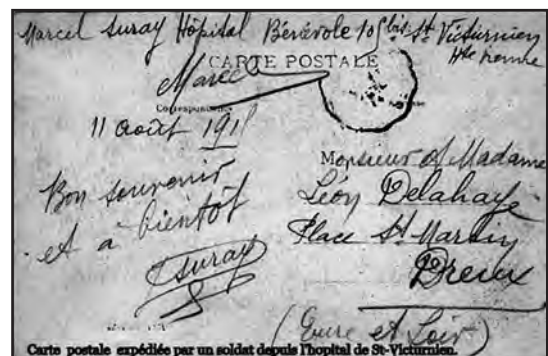 Marcel Suray Hôpital Bénévole 105 bis St Victurnien
Hte Vienne
CARTE POSTALE
Marcel
Correspondance
11 août 1918
Monsieur et Madame
Bon souvenir
Léon Delahaye
et à bientôt
Place St Martin
Suray
Dreux
(Eure et Loir)
Carte postale expédiée par un soldat depuis l'hopital de St-Victurnien.